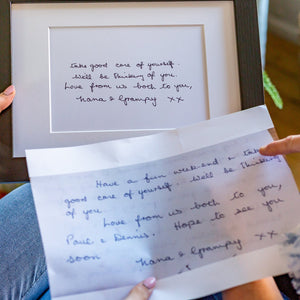 Take good care of yourself.
We'll be thinking of you.
Love from us both to you,
Nana & Grampy xx
Have a fun week-end & take
good care of yourself. We'll be thinking
of you.
Love from us both to you,
Paul & Dennis. Hope to see you
soon
Nana & Grampy xx